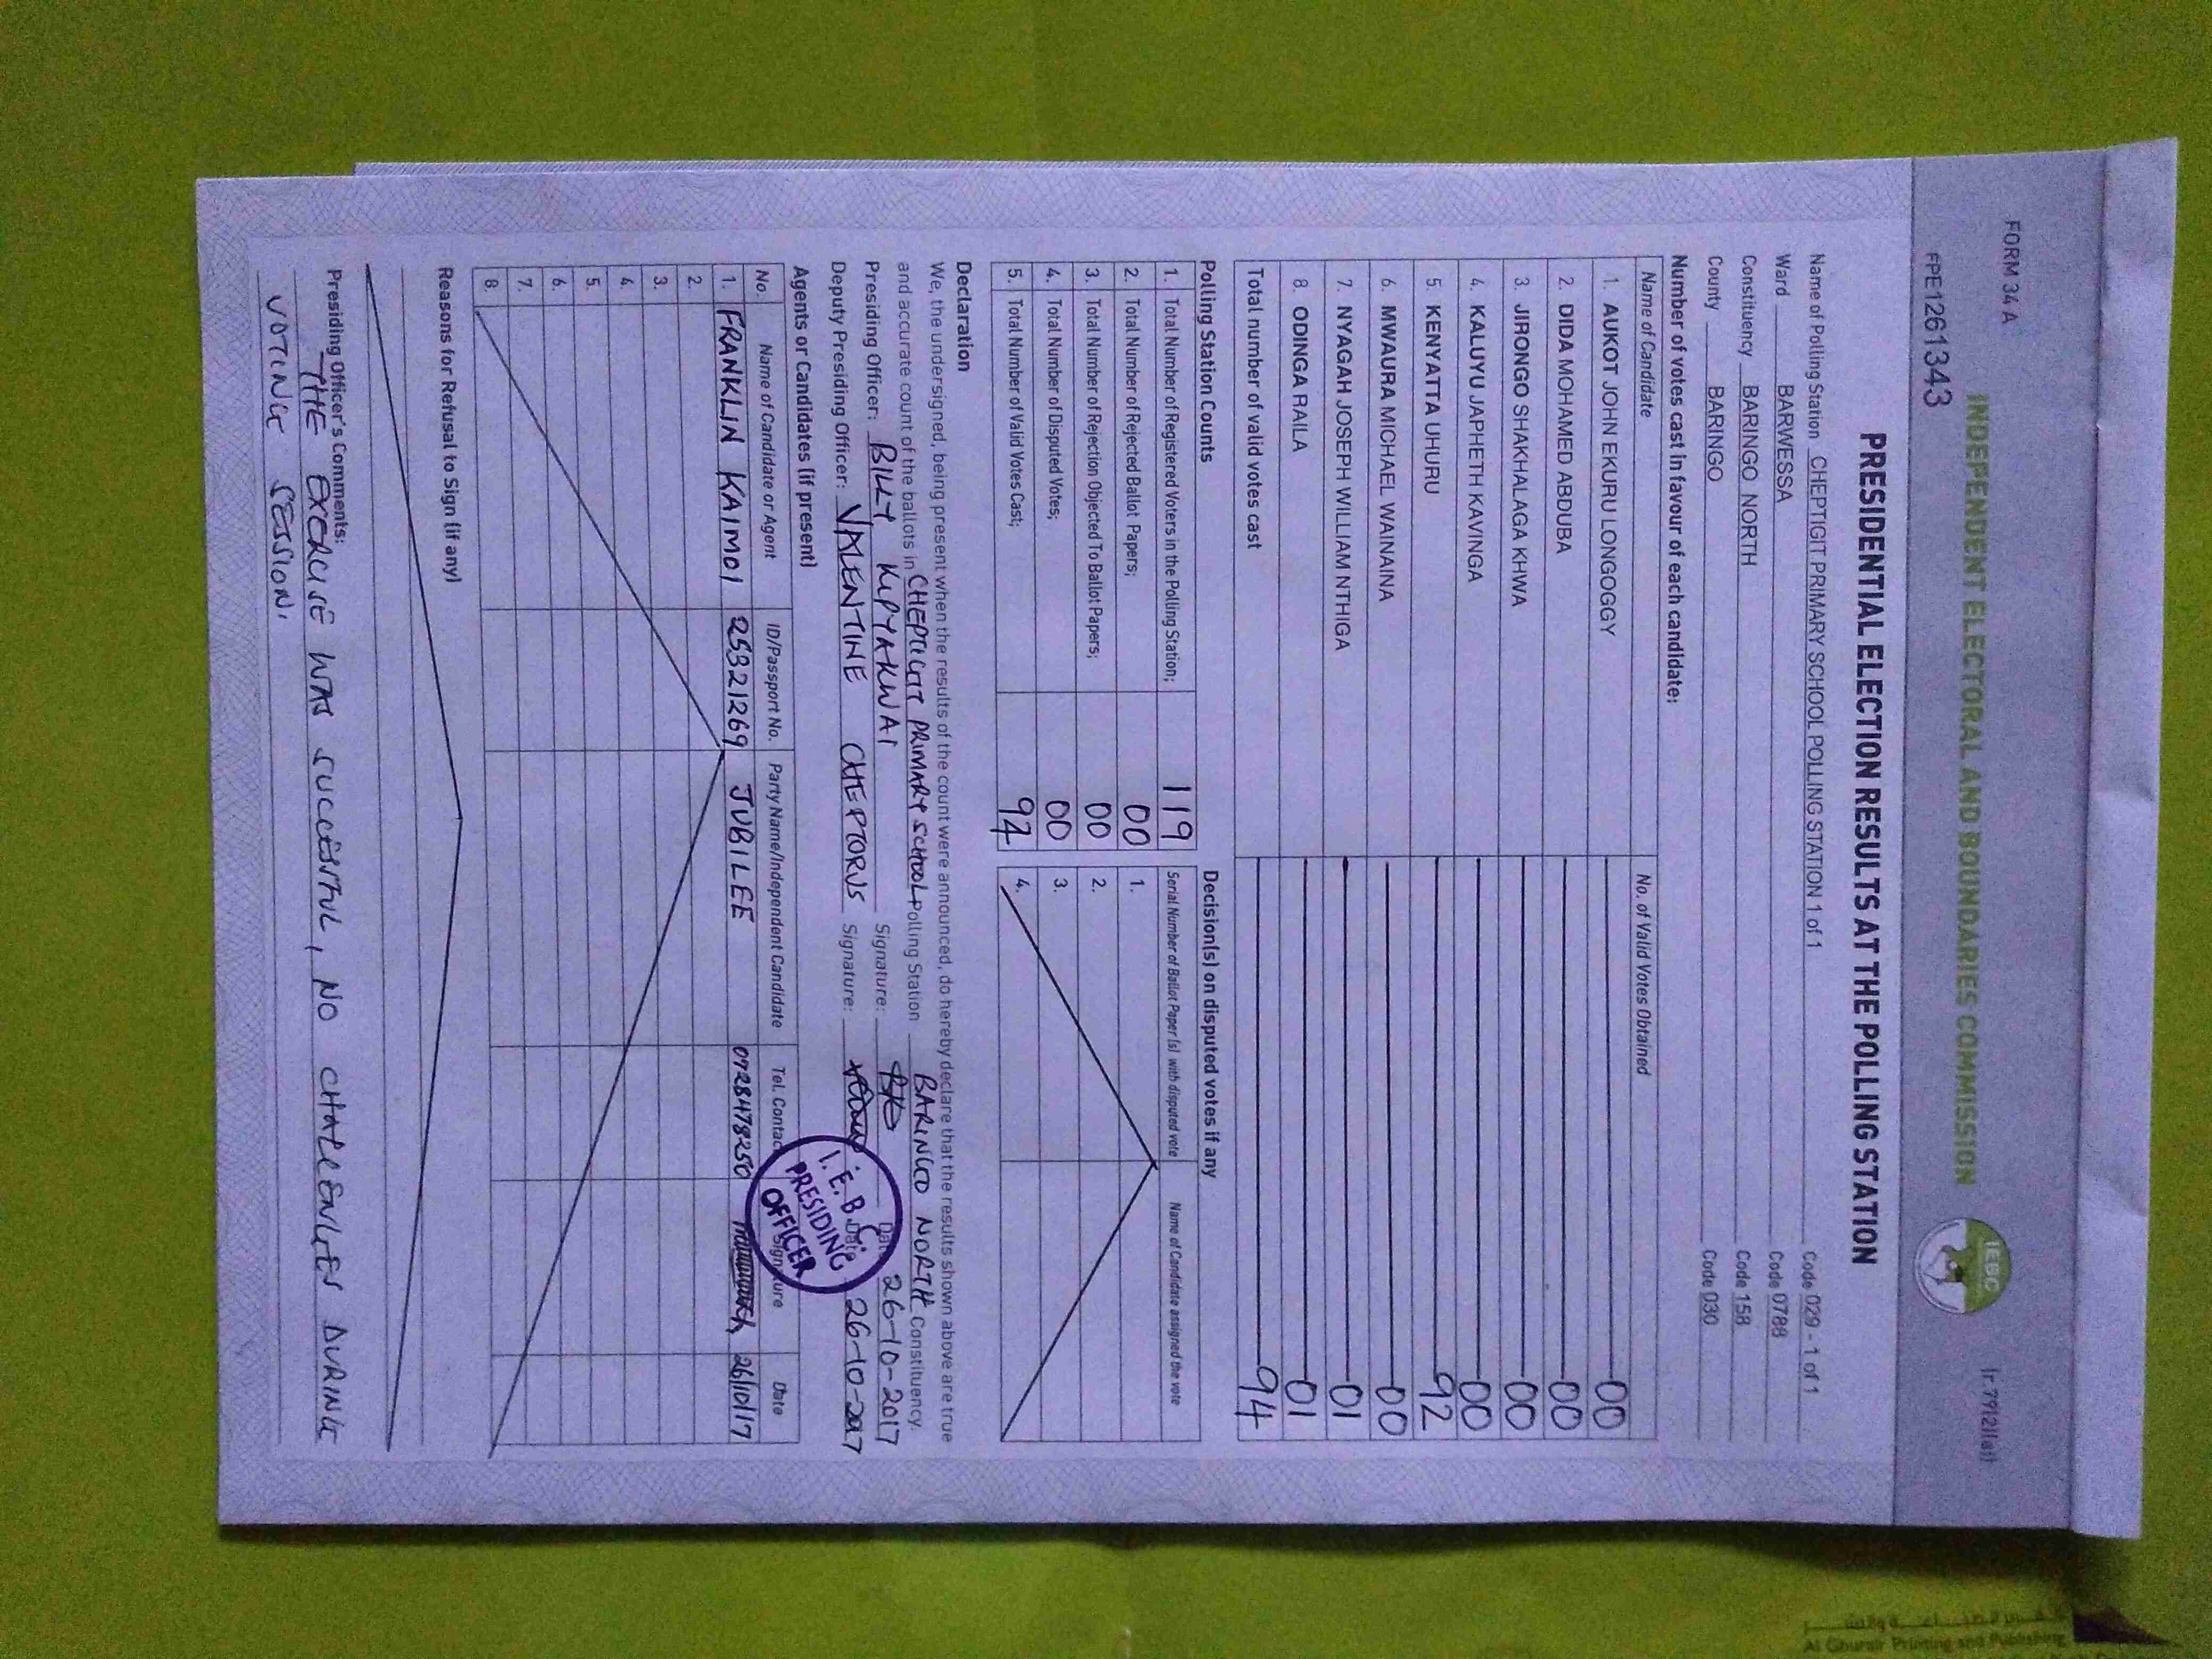 FORM 34 A
Ir 79(2)(a)
INDEPENDENT ELECTORAL AND BOUNDARIES COMMISSION
IEBC
FPE1261343
PRESIDENTIAL ELECTION RESULTS AT THE POLLING STATION
Name of Polling Station CHEPTIGIT PRIMARY SCHOOL POLLING STATION 1 of 1 Code 029 - 1 of 1
Ward BARWESSA Code 0788
Constituency BARINGO NORTH Code 158
County BARINGO Code 030
Number of votes cast in favour of each candidate:
Name of Candidate No. of Valid Votes Obtained
1. AUKOT JOHN EKURU LONGOGGY 00
2. DIDA MOHAMED ABDUBA 00
3. JIRONGO SHAKHALAGA KHWA 00
4. KALUYU JAPHETH KAVINGA 00
5. KENYATTA UHURU 92
6. MWAURA MICHAEL WAINAINA 00
7. NYAGAH JOSEPH WILLIAM NTHIGA 01
8. ODINGA RAILA 01
Total number of valid votes cast 94
Polling Station Counts Decision(s) on disputed votes if any
1. Total Number of Registered Voters in the Polling Station; 119 Serial Number of Ballot Paper (s) with disputed vote Name of Candidate assigned the vote
2. Total Number of Rejected Ballot Papers; 00 1.
3. Total Number of Rejection Objected To Ballot Papers; 00 2.
4. Total Number of Disputed Votes; 00 3.
5. Total Number of Valid Votes Cast; 94 4.
Declaration
We, the undersigned, being present when the results of the count were announced, do hereby declare that the results shown above are true
and accurate count of the ballots in CHEPTIGIT PRIMARY SCHOOL Polling Station BARINGO NORTH Constituency.
Presiding Officer: BILLY KIPYAKWAI Signature: Date 26-10-2017
Deputy Presiding Officer: VALENTINE CHEPTORUS Signature: Date 26-10-2017
I.E.B.C.
PRESIDING
OFFICER
Agents or Candidates (if present)
No. Name of Candidate or Agent ID/Passport No. Party Name/Independent Candidate Tel. Contact Signature Date
1. FRANKLIN KAIMOI 25321269 JUBILEE 0728478250 26/10/17
2.
3.
4.
5.
6.
7.
8.
Reasons for Refusal to Sign (if any)
Presiding Officer's Comments:
THE EXERCISE WAS SUCCESSFUL, NO CHALLENGES DURING
VOTING SESSION.
Al Ghurair Printing and Publishing